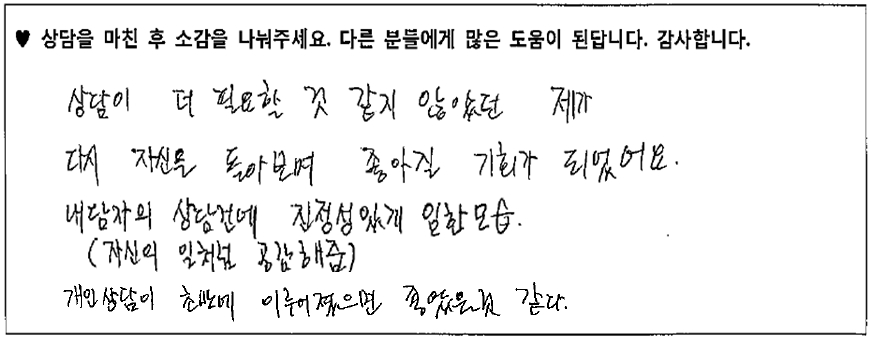 ♥ 상담을 마친 후 소감을 나눠주세요. 다른 분들에게 많은 도움이 된답니다. 감사합니다.
상담이 더 필요할 것 같지 않았던 제가
다시 자신을 돌아보며 좋아질 기회가 되었어요.
내담자의 상담건에 진정성있게 임한모습.
(자신의 일처럼 공감해줌)
개인상담이 초반에 이루어졌으면 좋았을것 같다.